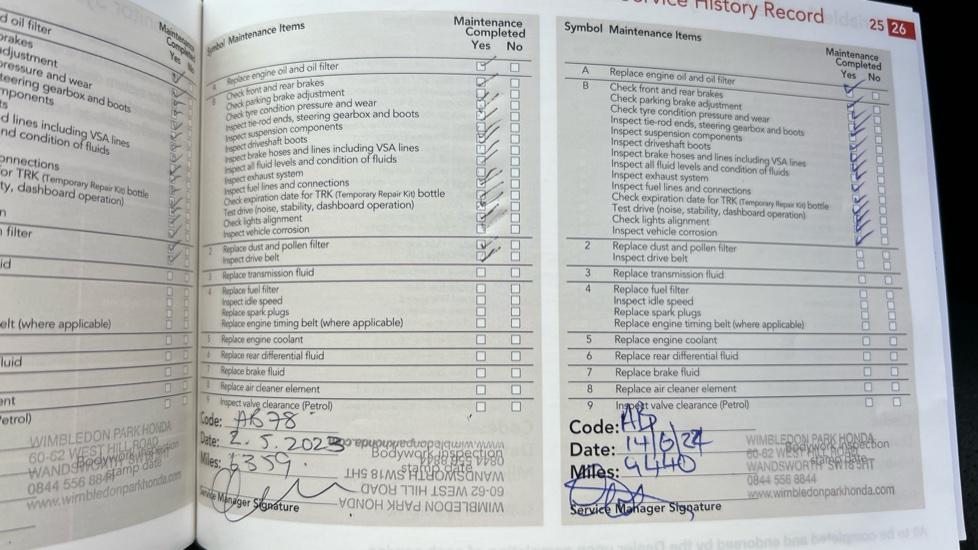 d oil filter
brakes
djustment
ressure and wear
teering gearbox and boots
mponents
ts
d lines including VSA lines
nd condition of fluids
onnections
or TRK (Temporary Repair Kit) bottle
ty, dashboard operation)
n
filter
id
elt (where applicable)
luid
ent
etrol)
Maintenance
Completed
Yes No
WIMBLEDON PARK HONDA
60-62 WEST HILL ROAD
Bodywork inspection
WANDSWORTH
stamp date
0844 556 88
www.wimbledonparkhonda.com
Symbol Maintenance Items
Maintenance
Completed
Yes No
A Replace engine oil and oil filter
B Check front and rear brakes
Check parking brake adjustment
Check tyre condition pressure and wear
Inspect tie-rod ends, steering gearbox and boots
Inspect suspension components
Inspect driveshaft boots
Inspect brake hoses and lines including VSA lines
Inspect all fluid levels and condition of fluids
Inspect exhaust system
Inspect fuel lines and connections
Check expiration date for TRK (Temporary Repair Kit) bottle
Test drive (noise, stability, dashboard operation)
Check lights alignment
Inspect vehicle corrosion
2 Replace dust and pollen filter
Inspect drive belt
3 Replace transmission fluid
4 Replace fuel filter
Inspect idle speed
Replace spark plugs
Replace engine timing belt (where applicable)
5 Replace engine coolant
6 Replace rear differential fluid
7 Replace brake fluid
8 Replace air cleaner element
9 Inspect valve clearance (Petrol)
Code: AB78
Date: 2.5.2023
Miles: 6359.
Service Manager Signature
www.wimbledonparkhonda.com
Bodywork inspection
stamp date
WANDSWORTH SW18 5HT
60-62 WEST HILL ROAD
WIMBLEDON PARK HONDA
Service History Record 25 26
Symbol Maintenance Items
Maintenance
Completed
Yes No
A Replace engine oil and oil filter
B Check front and rear brakes
Check parking brake adjustment
Check tyre condition pressure and wear
Inspect tie-rod ends, steering gearbox and boots
Inspect suspension components
Inspect driveshaft boots
Inspect brake hoses and lines including VSA lines
Inspect all fluid levels and condition of fluids
Inspect exhaust system
Inspect fuel lines and connections
Check expiration date for TRK (Temporary Repair Kit) bottle
Test drive (noise, stability, dashboard operation)
Check lights alignment
Inspect vehicle corrosion
2 Replace dust and pollen filter
Inspect drive belt
3 Replace transmission fluid
4 Replace fuel filter
Inspect idle speed
Replace spark plugs
Replace engine timing belt (where applicable)
5 Replace engine coolant
6 Replace rear differential fluid
7 Replace brake fluid
8 Replace air cleaner element
9 Inspect valve clearance (Petrol)
Code: AB
Date: 14/6/24
Miles: 9440
Service Manager Signature
WIMBLEDON PARK HONDA
Bodywork inspection
60-62 WEST HILL ROAD
stamp date
WANDSWORTH SW18 5HT
0844 556 8844
www.wimbledonparkhonda.com